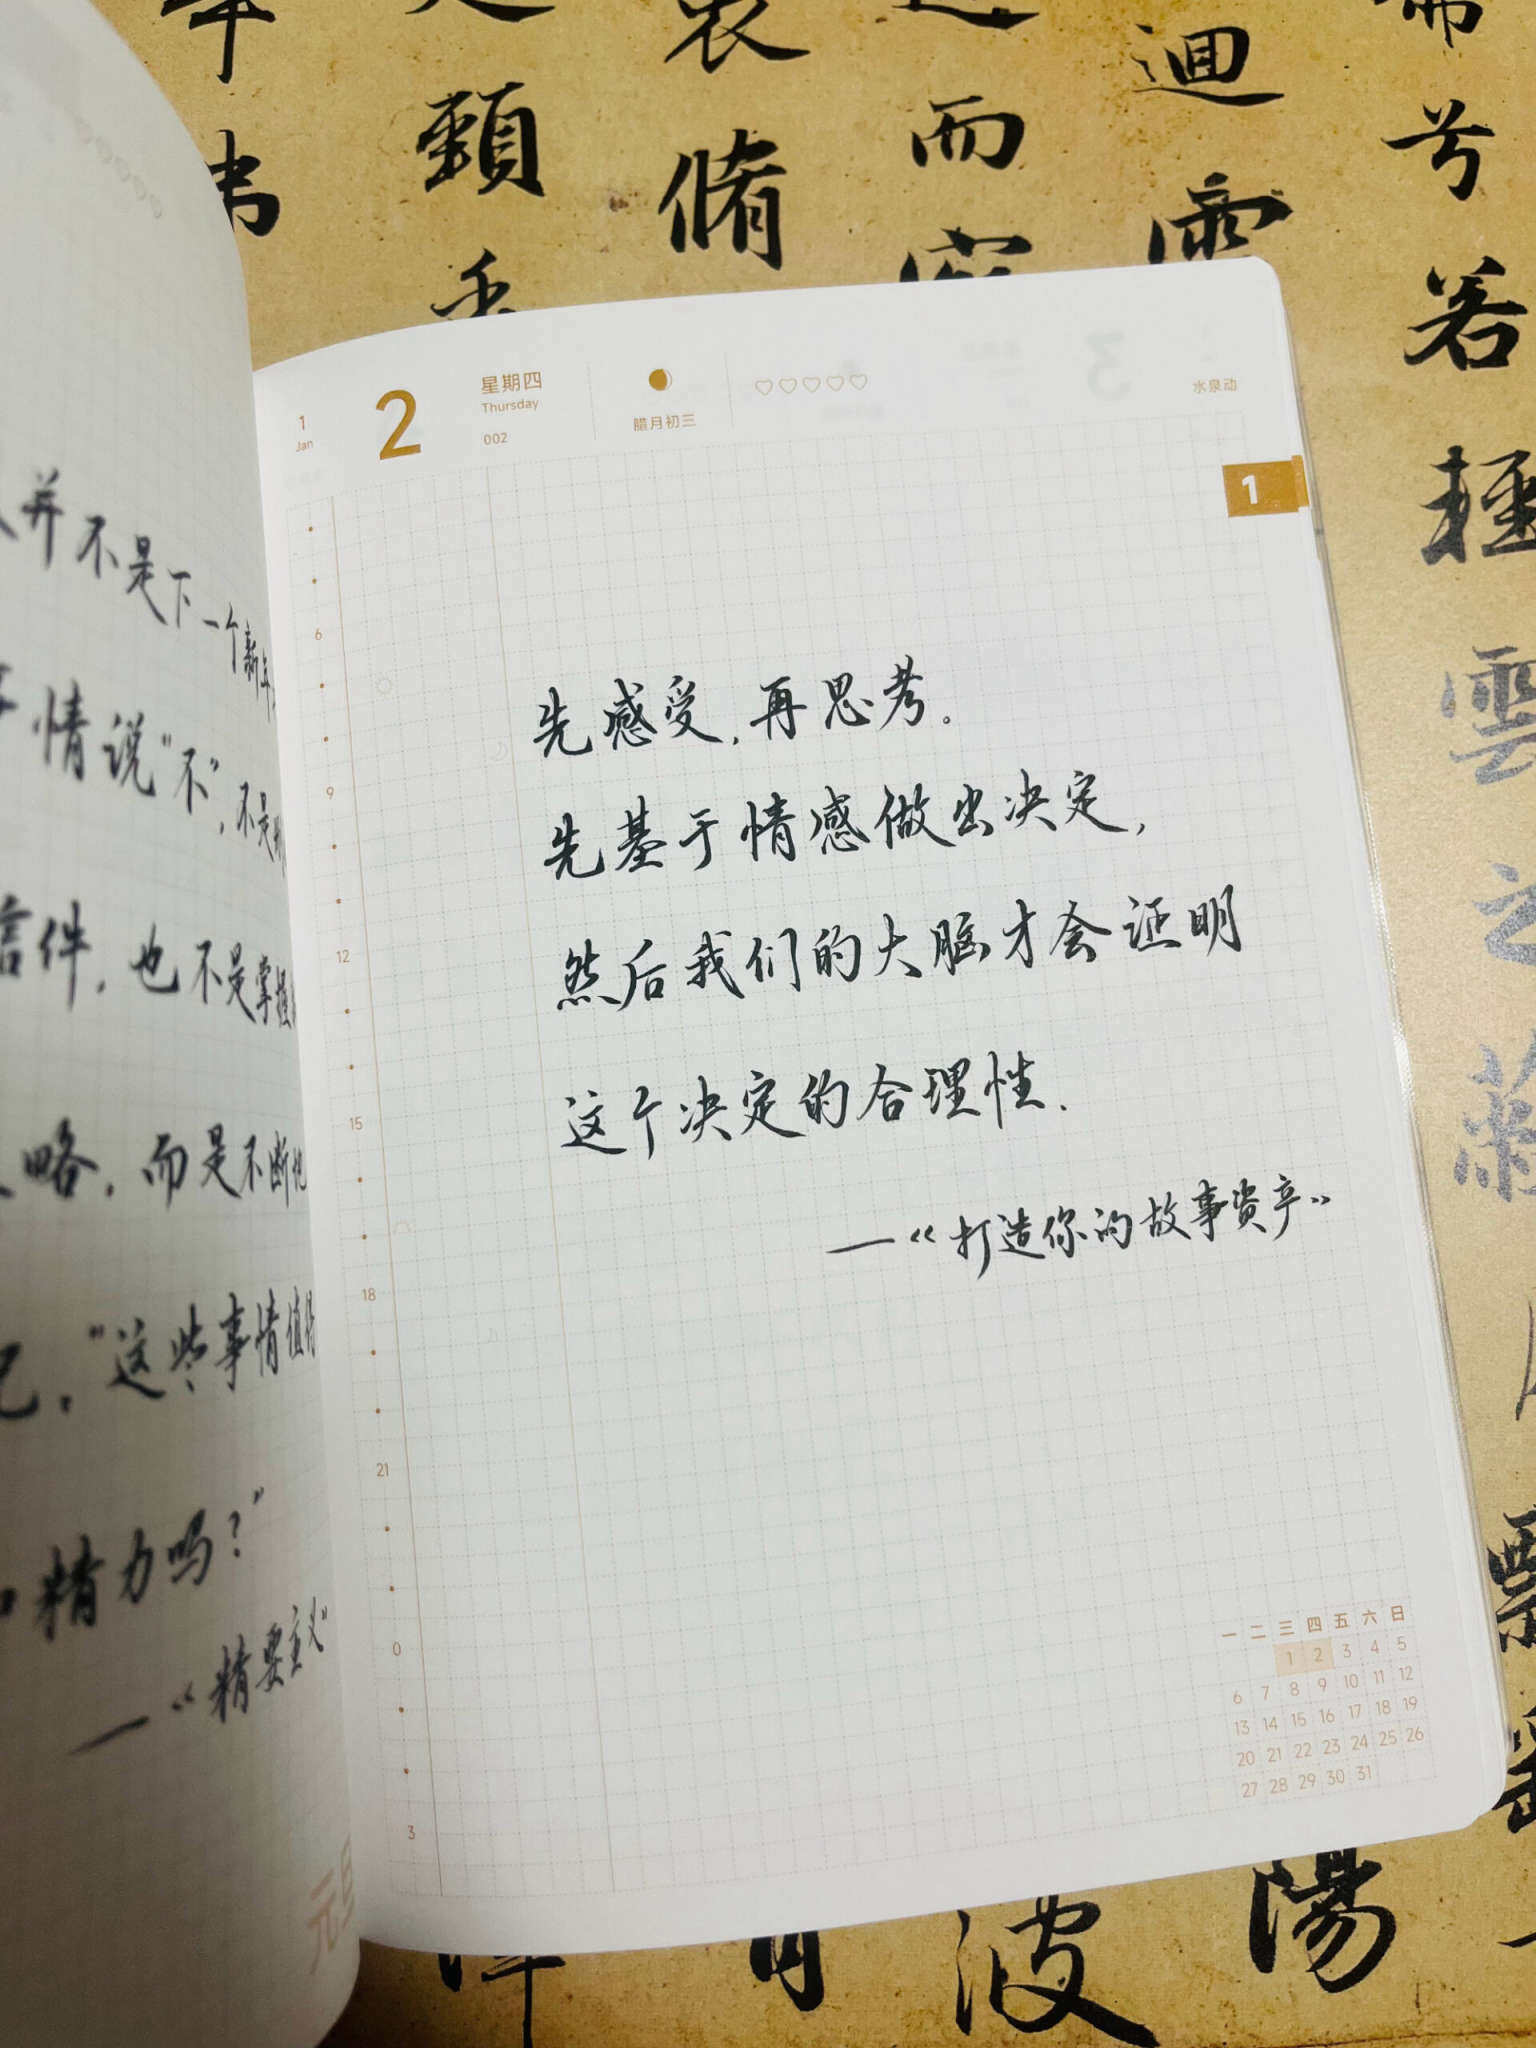 并不是下一个新年
情说“不”，不是
件，也不是掌握
略，而是不断
“这些事情值得
精力吗？”
—《精要主义》
元旦
1
Jan
2
星期四
Thursday
002
腊月初三
水泉动
1
6
9
12
15
18
21
0
3
先感受，再思考。
先基于情感做出决定，
然后我们的大脑才会证明
这个决定的合理性．
—《打造你的故事资产》
一 二 三 四 五 六 日
1 2 3 4 5
6 7 8 9 10 11 12
13 14 15 16 17 18 19
20 21 22 23 24 25 26
27 28 29 30 31
頸
脩
而
迴
雲
兮
若
輕
雲
之
飄
波
陽